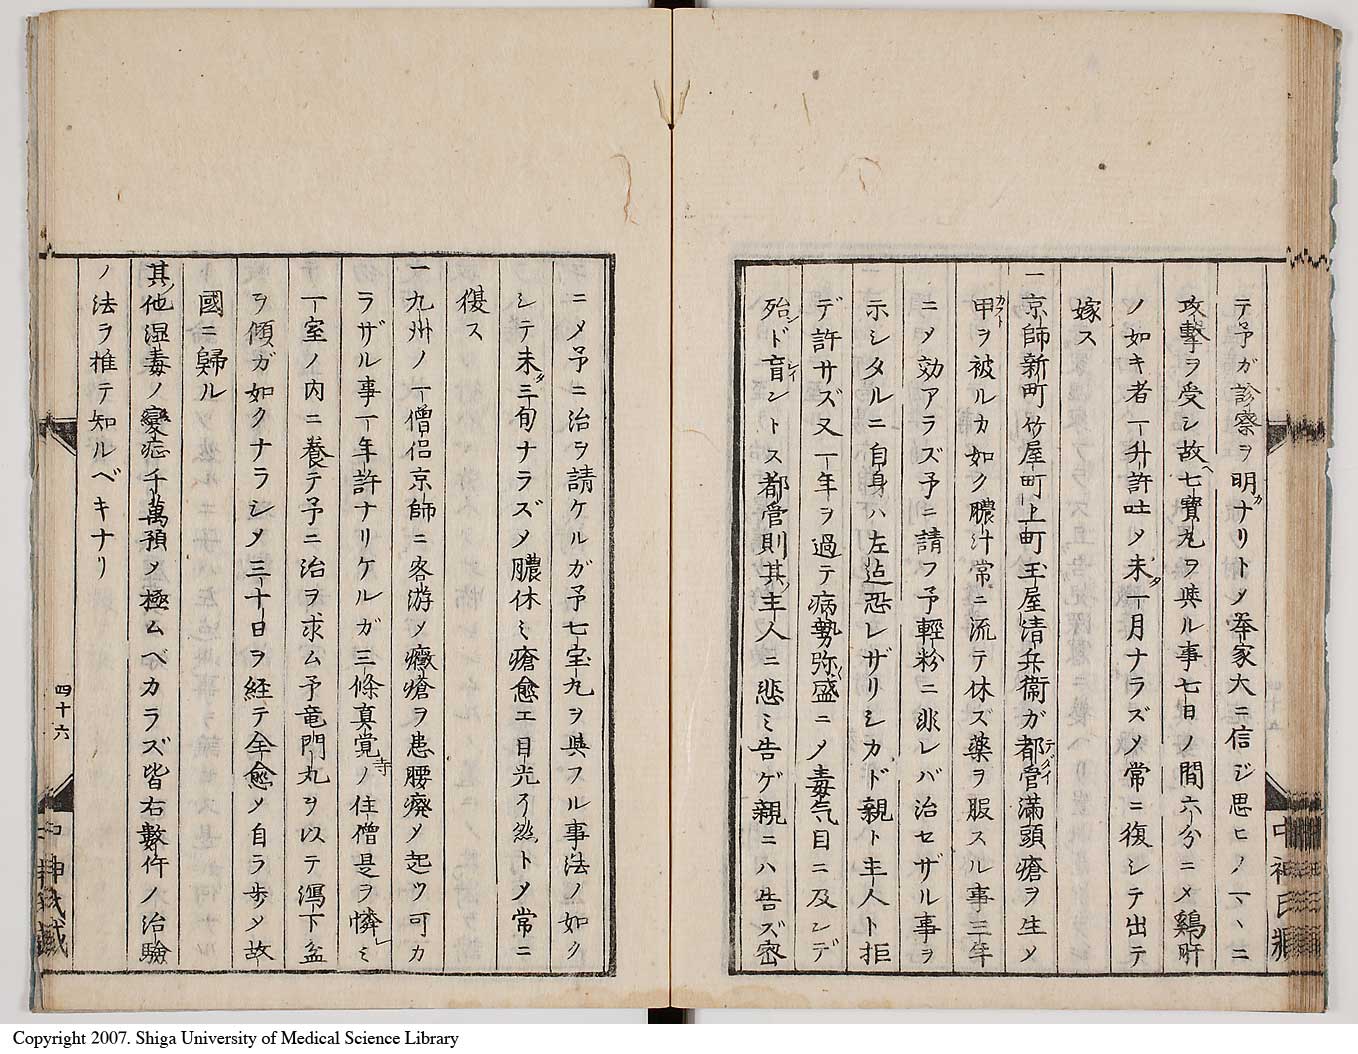 テ予ガ診察ヲ明カナリトメ挙家大ニ信ジ思ヒノマヽニ
攻撃ヲ受シ故ヘ七寳丸ヲ與ル事七日ノ間六分ニメ鷄肝
ノ如キ者一升許吐メ未タ一月ナラズメ常ニ復シテ出テ
嫁ス
一京師新町竹屋町上町玉屋清兵衞ガ都管テダイ滿頭瘡ヲ生メ
甲カブトヲ被ルカ如ク膿汁常ニ流テ休ズ藥ヲ服スル事三年
ニメ効アラズ予ニ請フ予輕粉ニ非レバ治セザル事ヲ
示シタルニ自身ハ左迠恐レザリシカド親ト主人ト拒
デ許サズ又一年ヲ過テ病勢弥盛ニメ毒気目ニ及ンデ
殆ンド盲シイントス都管則其ノ主人ニ悲ミ告ゲ親ニハ告ズ密
ニメ予ニ治ヲ請ケルガ予七宝丸ヲ與フル事法ノ如ク
シテ未タ三旬ナラズメ膿休ミ瘡愈エ目光了然トメ常ニ
復ス
一九州ノ一僧侣京師ニ客游メ癥瘡ヲ患腰癈メ起ツ可カ
ラザル事一年許ナリケルガ三條真覚寺ノ住僧是ヲ憐レミ
一室ノ内ニ養テ予ニ治ヲ求ム予竜門丸ヲ以テ瀉下盆
ヲ傾ガ如クナラシメ三十日ヲ経テ全愈メ自ラ歩メ故
國ニ歸ル
其ノ他湿毒ノ變症千萬預メ極ムベカラズ皆右數件ノ治驗
ノ法ヲ推テ知ルベキナリ
四十六
中神氏藏
Copyright 2007. Shiga University of Medical Science Library